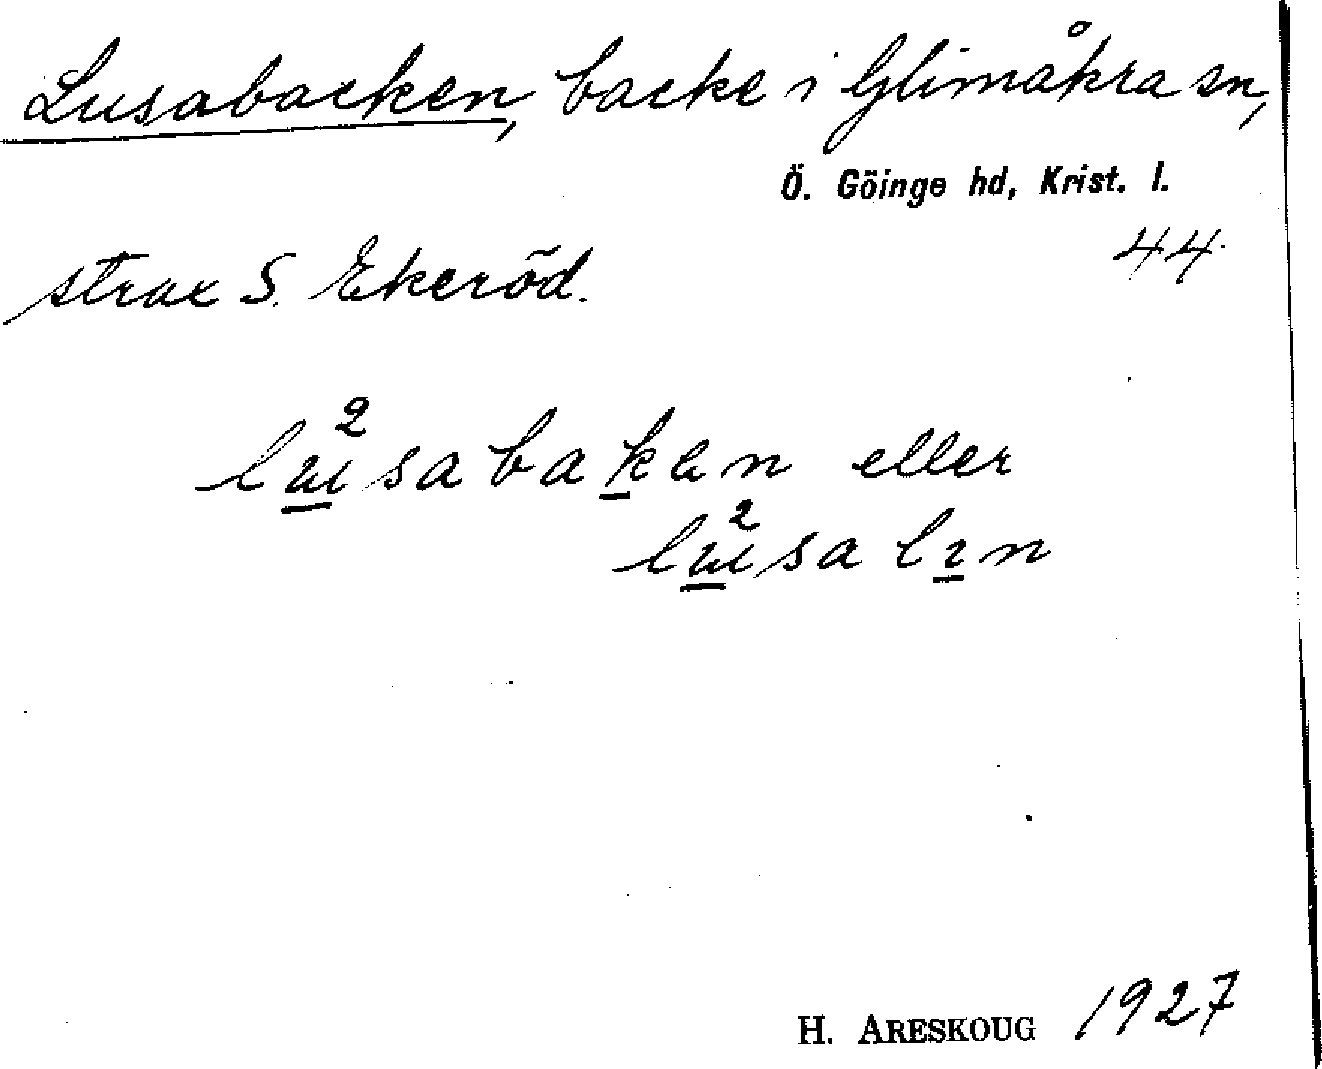 Lusabacken, backe i Glimåkra sn,
Ö. Göinge hd, Krist. l.
44
strax S. Ekeröd.
eller
H. ARESKOUG 1927